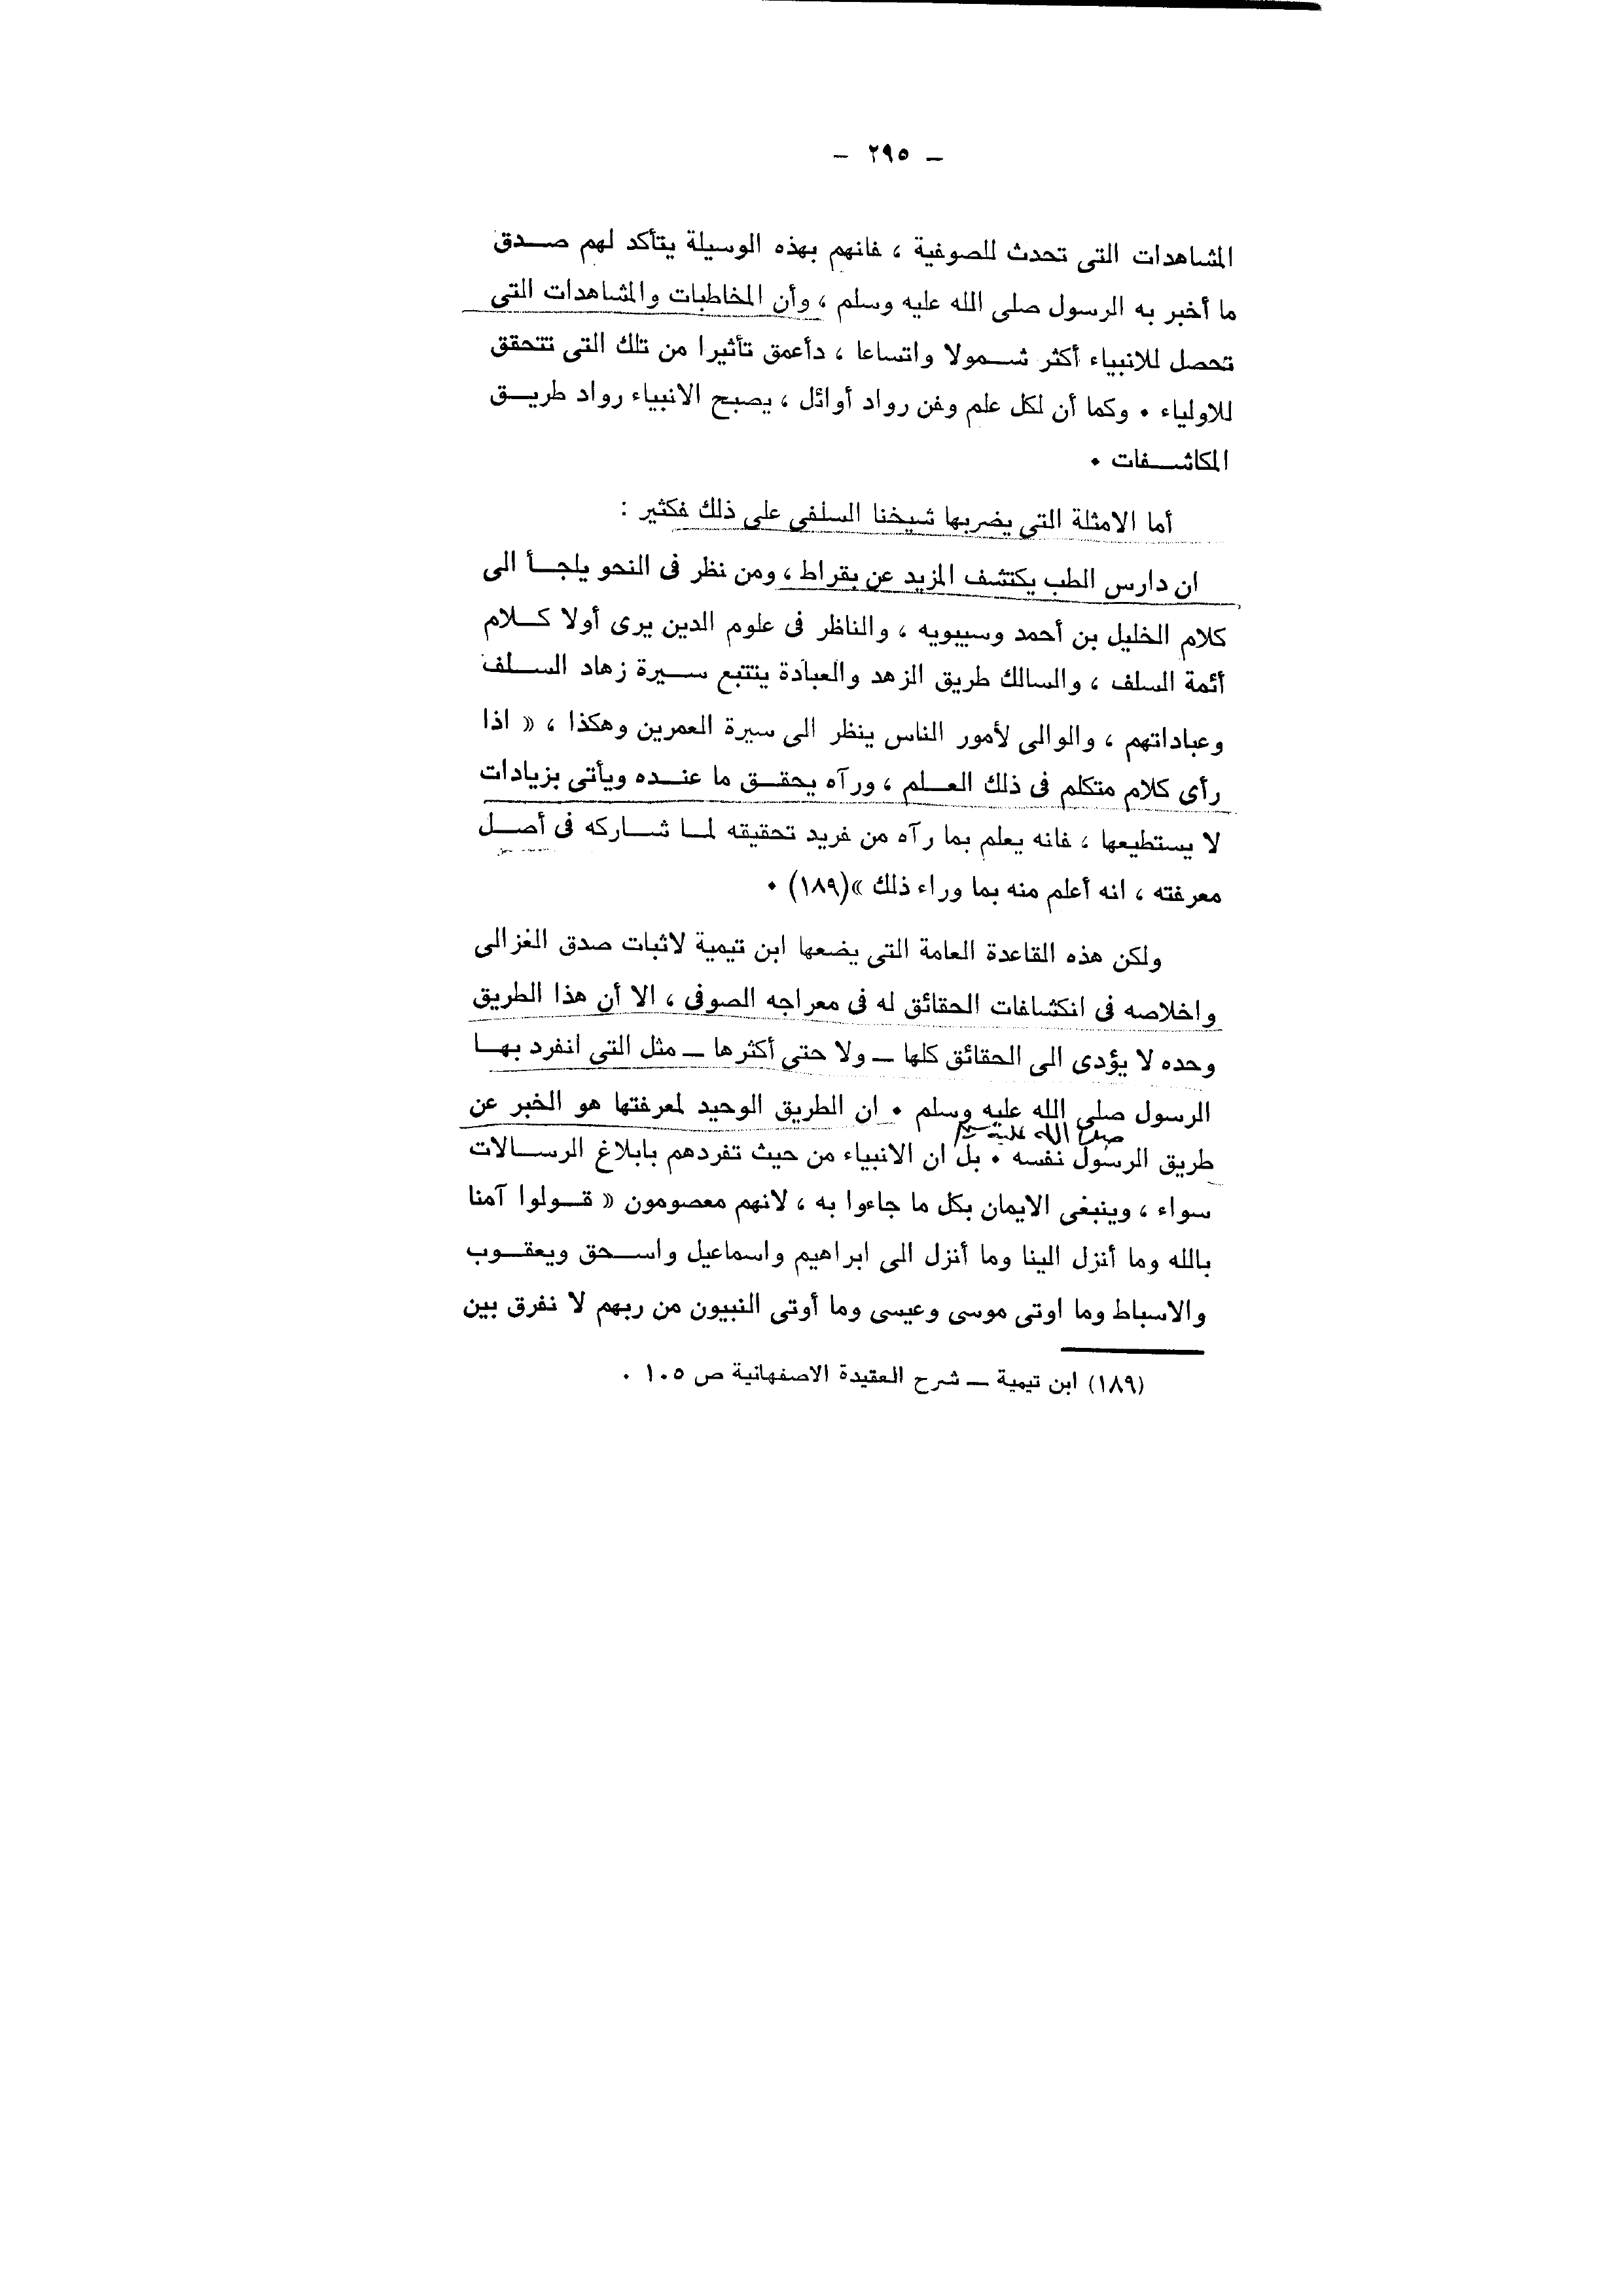 – ٢٩٥ –
المشاهدات التى تحدث للصوفية ، فانهم بهذه الوسيلة يتأكد لهم صـــدق
ما أخبر به الرسول صلى الله عليه وسلم ، وأن المخاطبات والمشاهدات التى
تحصل للانبياء أكثر شـــمولا واتساعا ، دأعمق تأثيرا من تلك التى تتحقق
للاولياء • وكما أن لكل علم وفن رواد أوائل ، يصبح الانبياء رواد طريـــق
المكاشـــفات •
أما الامثلة التى يضربها شيخنا السلفى على ذلك فكثير :
ان دارس الطب يكتشف المزيد عن بقراط ، ومن نظر فى النحو يلجـــأ الى
كلام الخليل بن أحمد وسيبويه ، والناظر فى علوم الدين يرى أولا كـــلام
أئمة السلف ، والسالك طريق الزهد والعبادة يتتبع ســـيرة زهاد الســـلف
وعباداتهم ، والوالى لأمور الناس ينظر الى سيرة العمرين وهكذا ، « اذا
رأى كلام متكلم فى ذلك العـــلم ، ورآه يحقـــق ما عنـــده ويأتى بزيادات
لا يستطيعها ، فانه يعلم بما رآه من فريد تحقيقه لمـــا شـــاركه فى أصـــل
معرفته ، انه أعلم منه بما وراء ذلك »(١٨٩) •
ولكن هذه القاعدة العامة التى يضعها ابن تيمية لاثبات صدق الغزالى
واخلاصه فى انكشافات الحقائق له فى معراجه الصوفى ، الا أن هذا الطريق
وحده لا يؤدى الى الحقائق كلها ــ ولا حتى أكثرها ــ مثل التى انفرد بهـــا
الرسول صلى الله عليه وسلم • ان الطريق الوحيد لمعرفتها هو الخبر عن
صلى الله عليه وسلم
طريق الرسول نفسه • بل ان الانبياء من حيث تفردهم بابلاغ الرســـالات
سواء ، وينبغى الايمان بكل ما جاءوا به ، لانهم معصومون « قـــولوا آمنا
بالله وما أنزل الينا وما أنزل الى ابراهيم واسماعيل واســـحق ويعقـــوب
والاسباط وما اوتى موسى وعيسى وما أوتى النبيون من ربهم لا نفرق بين
(١٨٩) ابن تيمية ــ شرح العقيدة الاصفهانية ص ١٠٥ .